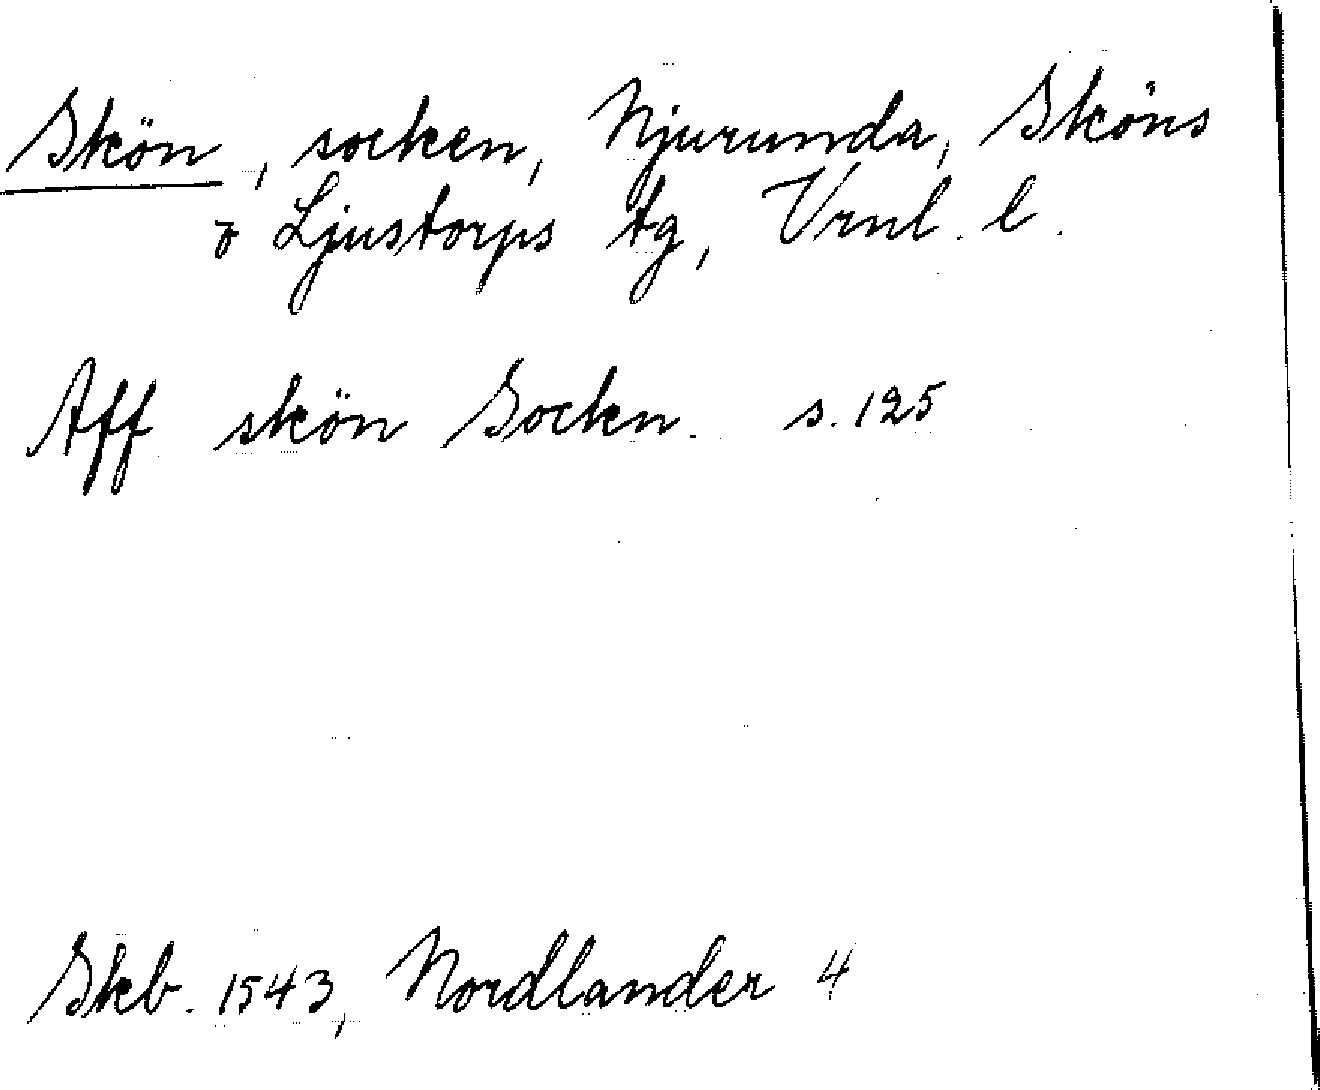 Skön, socken, Njurunda, Sköns
o Ljustorps tg, Vrnl. l.
Aff skön Sockn. s. 125
Skb. 1543, Nordlander 4